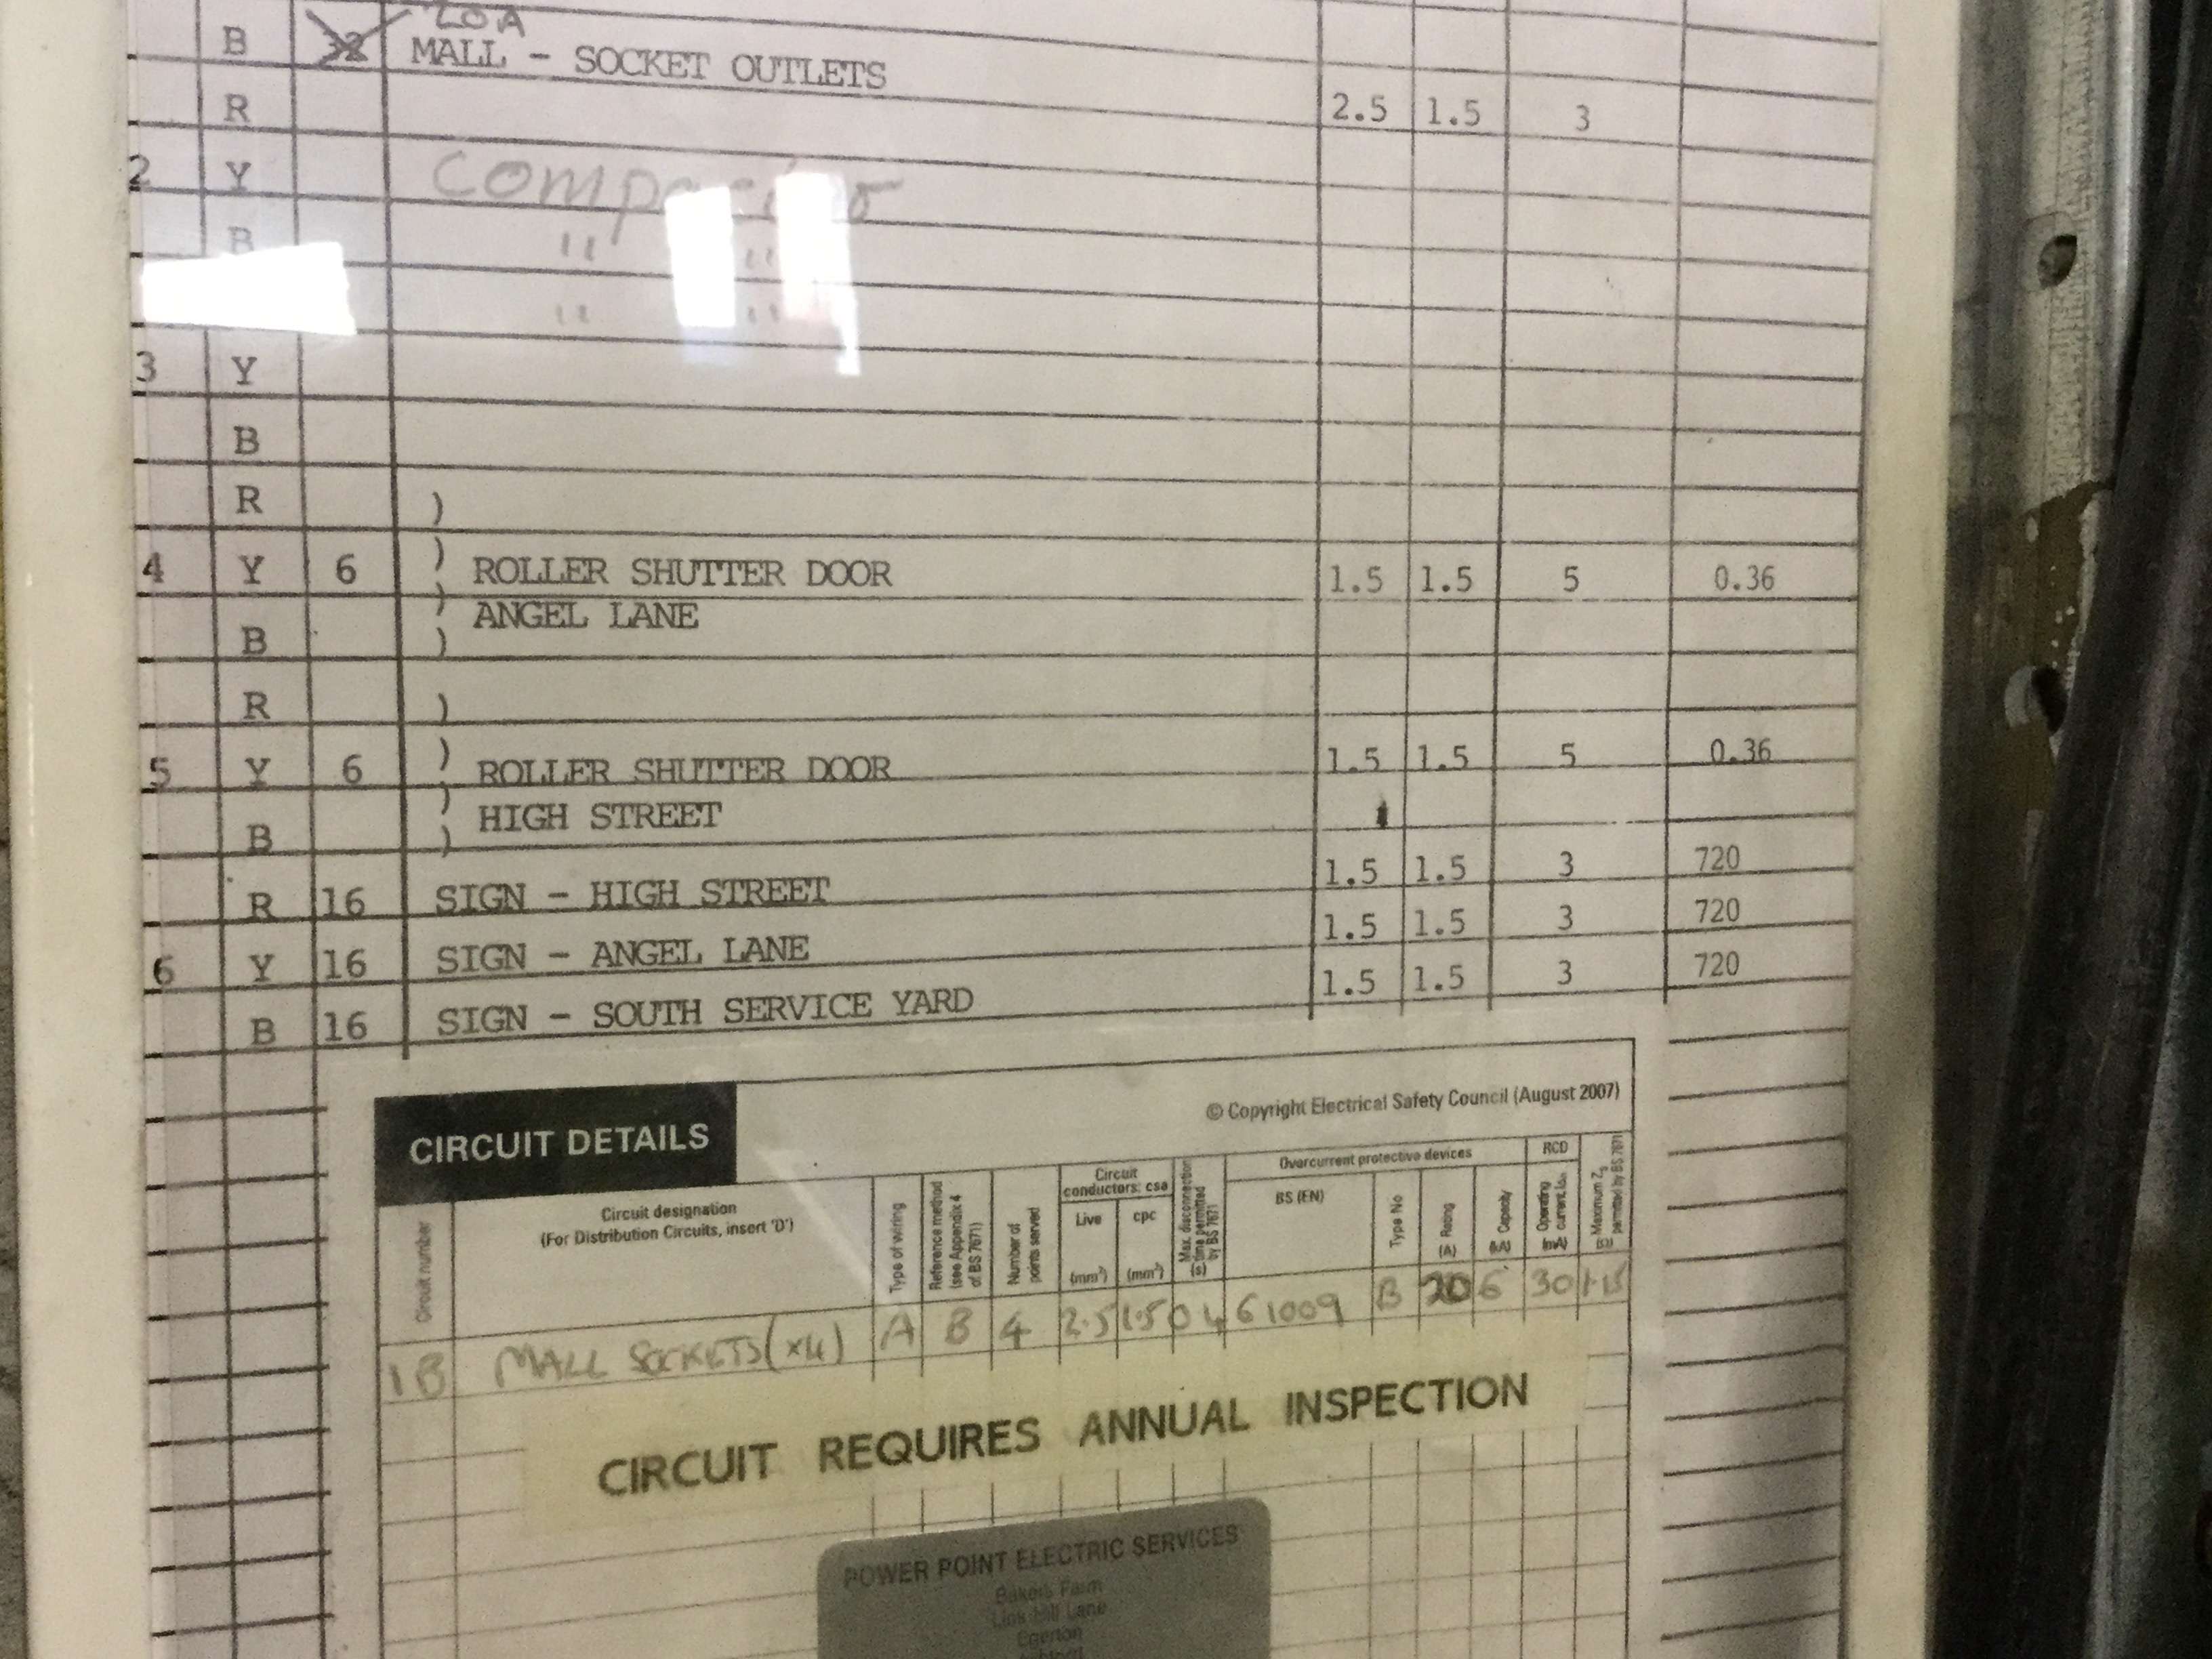 20A
B 32 MALL - SOCKET OUTLETS
R 2.5 1.5 3
2 Y
B " "
" "
3 Y
B
R )
4 Y 6 ) ROLLER SHUTTER DOOR 1.5 1.5 5 0.36
) ANGEL LANE
B )
R )
5 Y 6 ) ROLLER SHUTTER DOOR 1.5 1.5 5 0.36
) HIGH STREET
B )
R 16 SIGN - HIGH STREET 1.5 1.5 3 720
6 Y 16 SIGN - ANGEL LANE 1.5 1.5 3 720
B 16 SIGN - SOUTH SERVICE YARD 1.5 1.5 3 720
CIRCUIT DETAILS
© Copyright Electrical Safety Council (August 2007)
Circuit number
Circuit designation
(For Distribution Circuits, insert 'D')
Type of wiring
Reference method
(see Appendix 4
of BS 7671)
Number of
points served
Circuit
conductors: csa
Live
(mm²)
cpc
(mm²)
Max. disconnection
time permitted
by BS 7671
(s)
Overcurrent protective devices
BS (EN)
Type No
Rating
(A)
Capacity
(kA)
RCD
Operating
current, I∆n
(mA)
Maximum Zs
permitted by BS 7671
(Ω)
1B MALL SOCKETS (x4) A B 4 2.5 1.5 0 4 61009 B 20 6 30 1.15
CIRCUIT REQUIRES ANNUAL INSPECTION
POWER POINT ELECTRIC SERVICES
Bakers Farm
Link Hill Lane
Egerton